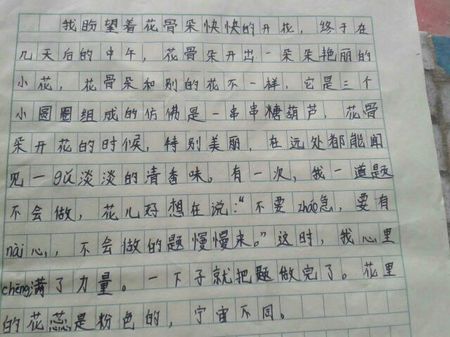 我盼望着花骨朵快快的开花，终于在
几天后的中午，花骨朵开出一朵朵艳丽的
小花，花骨朵和别的花不一样，它是三个
小圆圈组成的仿佛是一串串糖葫芦，花骨
朵开花的时候，特别美丽，在远处都能闻
见一股淡淡的清香味。有一次，我一道题
不会做，花儿好想在说：“不要zháo急，要有
nài心，不会做的题慢慢来。”这时，我心里
chōng满了力量。一下子就把题做完了。花里
的花蕊是粉色的，宇宙不同。